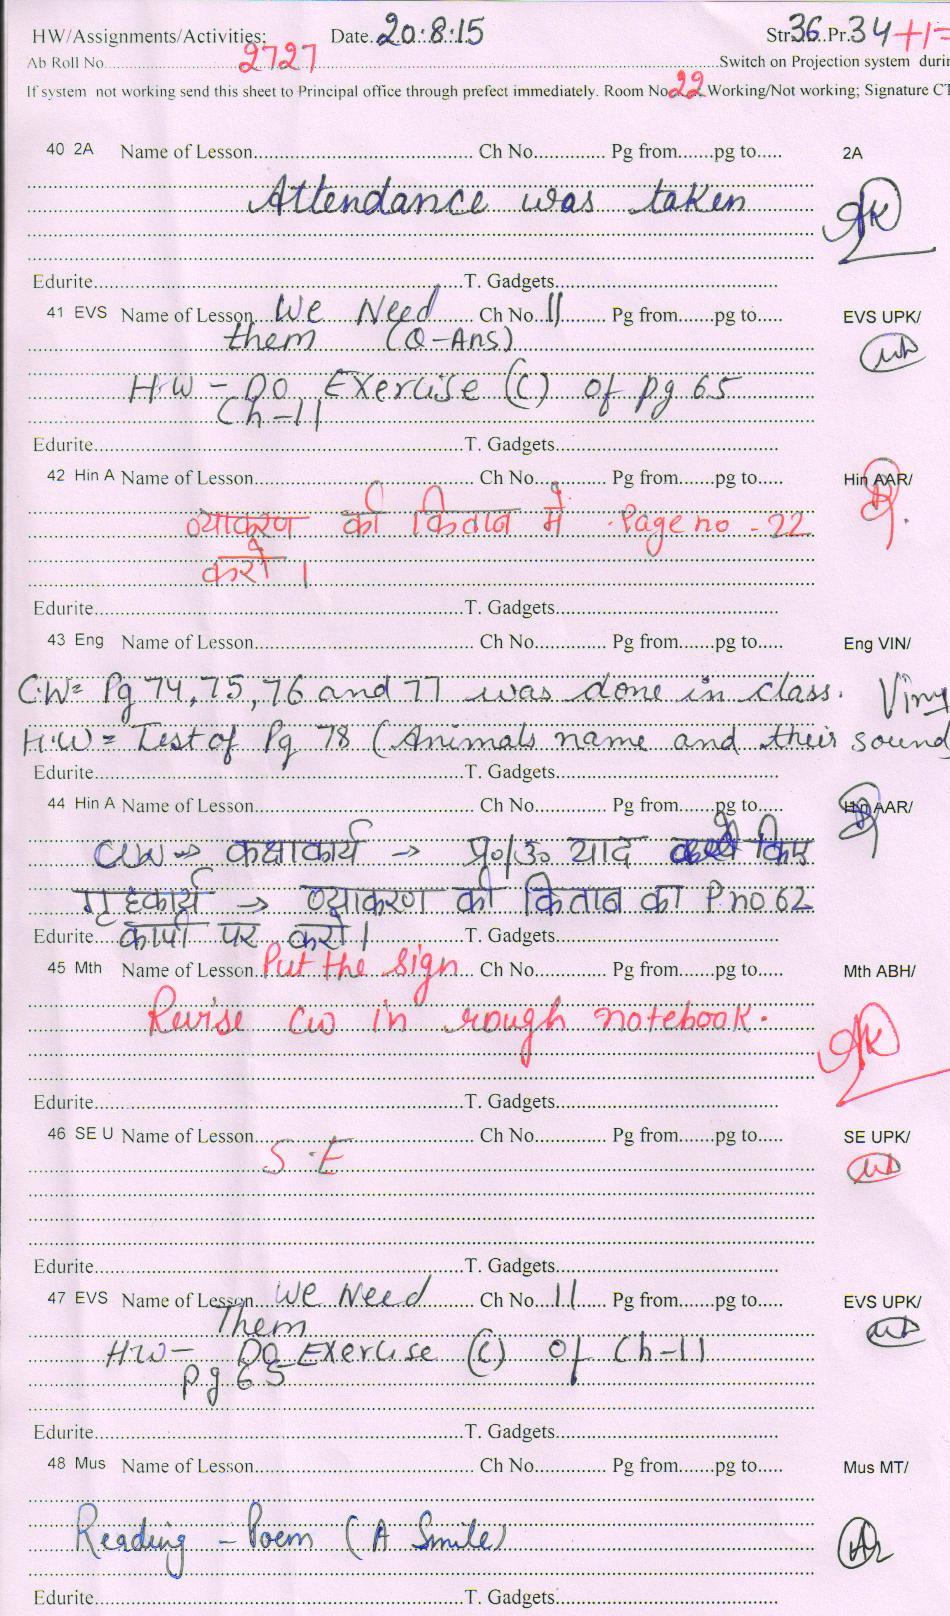 HW/Assignments/Activities: Date..20:8:15 Str36..Pr.34+1=
Ab Roll No 2727 Switch on Projection system durin
If system not working send this sheet to Principal office through prefect immediately. Room No 22 Working/Not working; Signature CT
40 2A Name of Lesson Ch No Pg from pg to 2A
Attendance was taken
Edurite T. Gadgets
41 EVS Name of Lesson We Need Ch No 11 Pg from pg to EVS UPK/
them (Q-Ans)
H.W - DO Exercise (C) of pg 65
Ch-11
Edurite T. Gadgets
42 Hin A Name of Lesson Ch No Pg from pg to Hin AAR/
व्याकरण की किताब में Page no - 22
करो ।
Edurite T. Gadgets
43 Eng Name of Lesson Ch No Pg from pg to Eng VIN/
C.W= Pg 74, 75, 76 and 77 was done in class.
H.W = Test of Pg 78 (Animals name and their sound
Edurite T. Gadgets
44 Hin A Name of Lesson Ch No Pg from pg to Hin AAR/
CW → कक्षाकार्य → प्र०/उ० याद किए
गृहकार्य → व्याकरण की किताब का P no 62
Edurite कापी पर करो। T. Gadgets
45 Mth Name of Lesson Put the sign Ch No Pg from pg to Mth ABH/
Revise cw in rough notebook.
Edurite T. Gadgets
46 SE U Name of Lesson Ch No Pg from pg to SE UPK/
S.E
Edurite T. Gadgets
47 EVS Name of Lesson We Need Ch No 11 Pg from pg to EVS UPK/
Them
H.W- DO Exercise (C) of Ch-11
pg 65
Edurite T. Gadgets
48 Mus Name of Lesson Ch No Pg from pg to Mus MT/
Reading - Poem (A Smile)
Edurite T. Gadgets